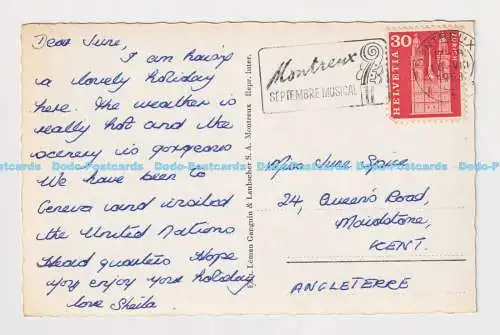 Dear June,
I am having
a lovely holiday
here. The weather is
really hot and the
scenery is gorgeous
We have been to
Geneva and visited
the United Nations
Head quarters Hope
you enjoy your holiday
love Sheila
Léman Genguin & Laubscher S. A. Montreux Repr. inter.
Montreux
SEPTEMBRE MUSICAL
30
HELVETIA
Miss June Spice
24, Queen's Road,
Maidstone,
KENT.
ANGLETERRE
Dodo-Postcards Dodo-Postcards Dodo-Postcards Dodo-Postcards Dodo-Postcards Dodo-Postcards